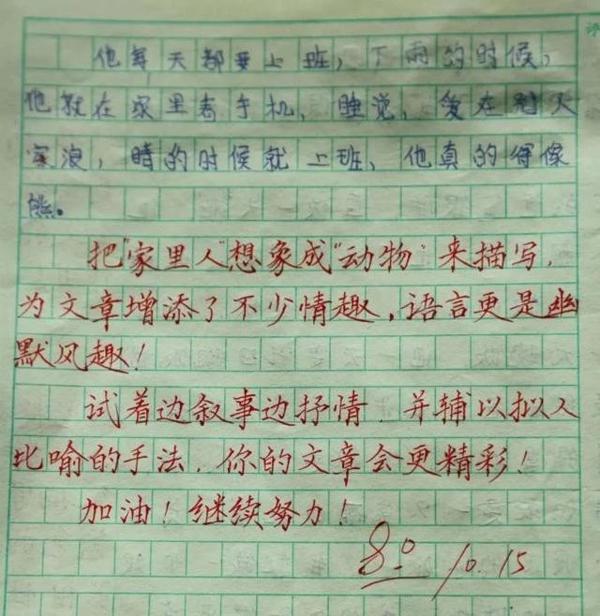 他每天都要上班，下雨的时候，
他就在家里看手机、睡觉，爱在刮大
浪，晴的时候就上班，他真的得像
熊。
把"家里人"想象成"动物"来描写，
为文章增添了不少情趣，语言更是幽
默风趣！
试着边叙事边抒情，并辅以拟人
比喻的手法，你的文章会更精彩！
加油！继续努力！
80 10.15